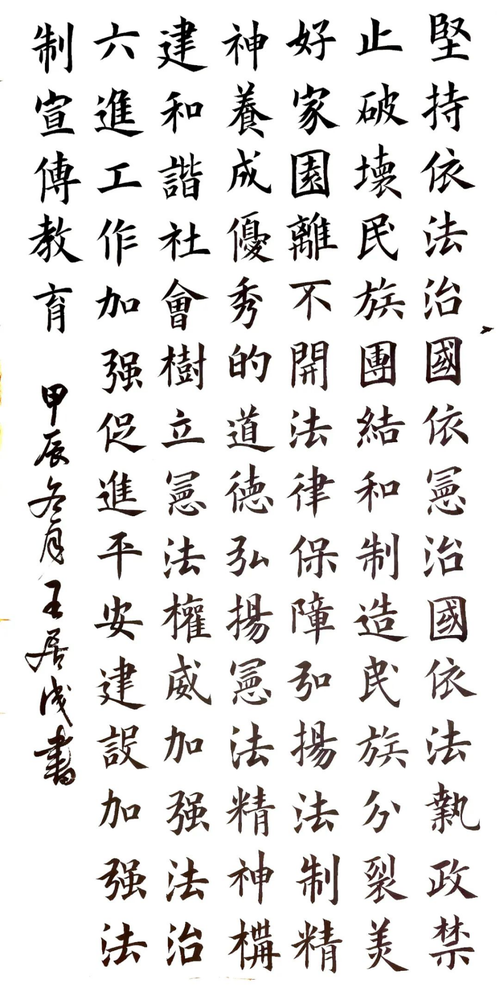 堅持依法治國依憲治國依法執政禁
止破壞民族團結和制造民族分裂美
好家園離不開法律保障弘揚法制精
神養成優秀的道德弘揚憲法精神構
建和諧社會樹立憲法權威加强法治
六進工作加强促進平安建設加强法
制宣傳教育
甲辰冬月王居成書